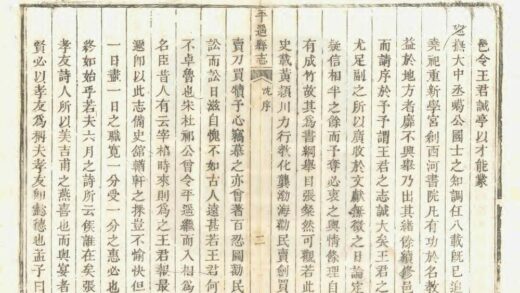 邑令王君誠亭以才能蒙
撫大中丞噶公國士之知調任八載旣已追
堯祀重新學宮創西河書院凡有功於名教
益於地方者靡不興舉乃出其緒餘續修邑
而請序於予予謂王君之志誠大矣王君之
尤足嗣之所以廣收於文獻無徵之日論定
疑信相半之餘而予奪必衷之輿情條理自
有成竹故其為書綱舉目張粲然可觀若此
平遥縣志
序
二
史載黃頴川力行教化龔渤海勸民賣劍買
賣刀買犢予心竊慕之亦嘗著百忍圖勸民
訟而訟日滋自愧不如古人遠甚若王君何
不卓魯也朱杜祁公嘗令平遥繼而入相為
名臣昔人有云宰時來則為之王君報最
遷卽以此志備史館輶軒之採豈不愉快但
一日盡一日之職寬一分受一分之惠必也
終如始乎若夫六月之詩所云侯誰在矣張
孝友詩人所以美吉甫之燕喜也而與宴者
賢必以孝友為稱夫孝友懿德也孟子曰